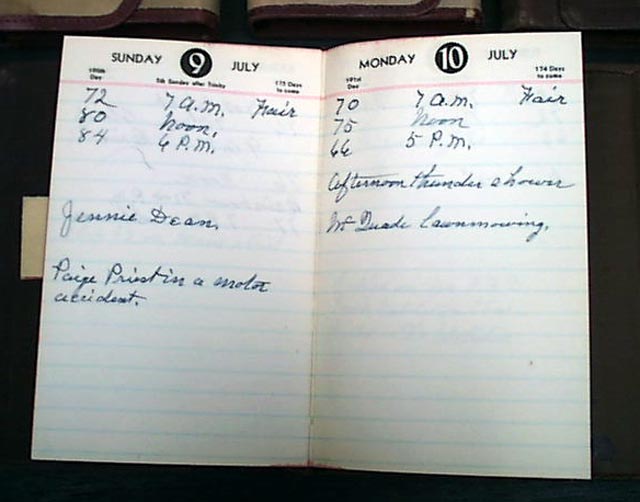 SUNDAY 9 JULY
190th Day 5th Sunday after Trinity 175 Days to come
72 7 A.M. Fair
80 Noon.
84 6 P.M.
Jennie Dean.
Paige Priest in a motor
accident.
MONDAY 10 JULY
191st Day 174 Days to come
70 7 A.M. Fair
75 Noon
66 5 P.M.
Afternoon thunder shower
Mc Quade lawnmowing.